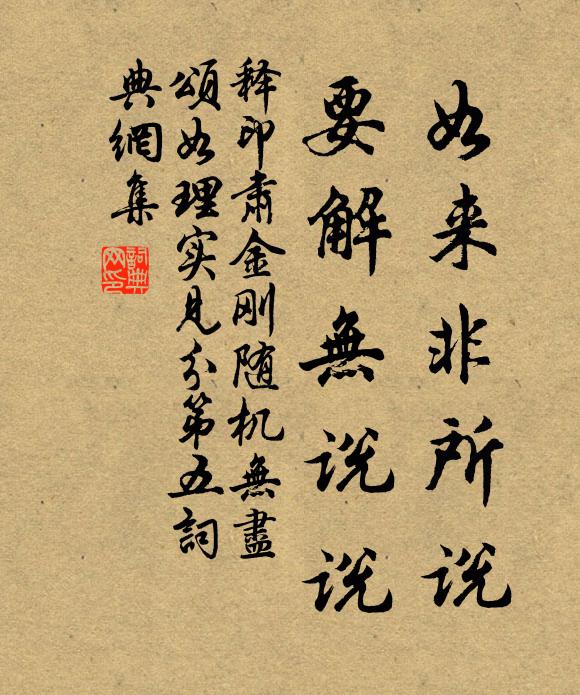 如来非所说
要解無说说
释印肃金刚随机無盡
頌如理实見分第五詞
典網集
詞典网印